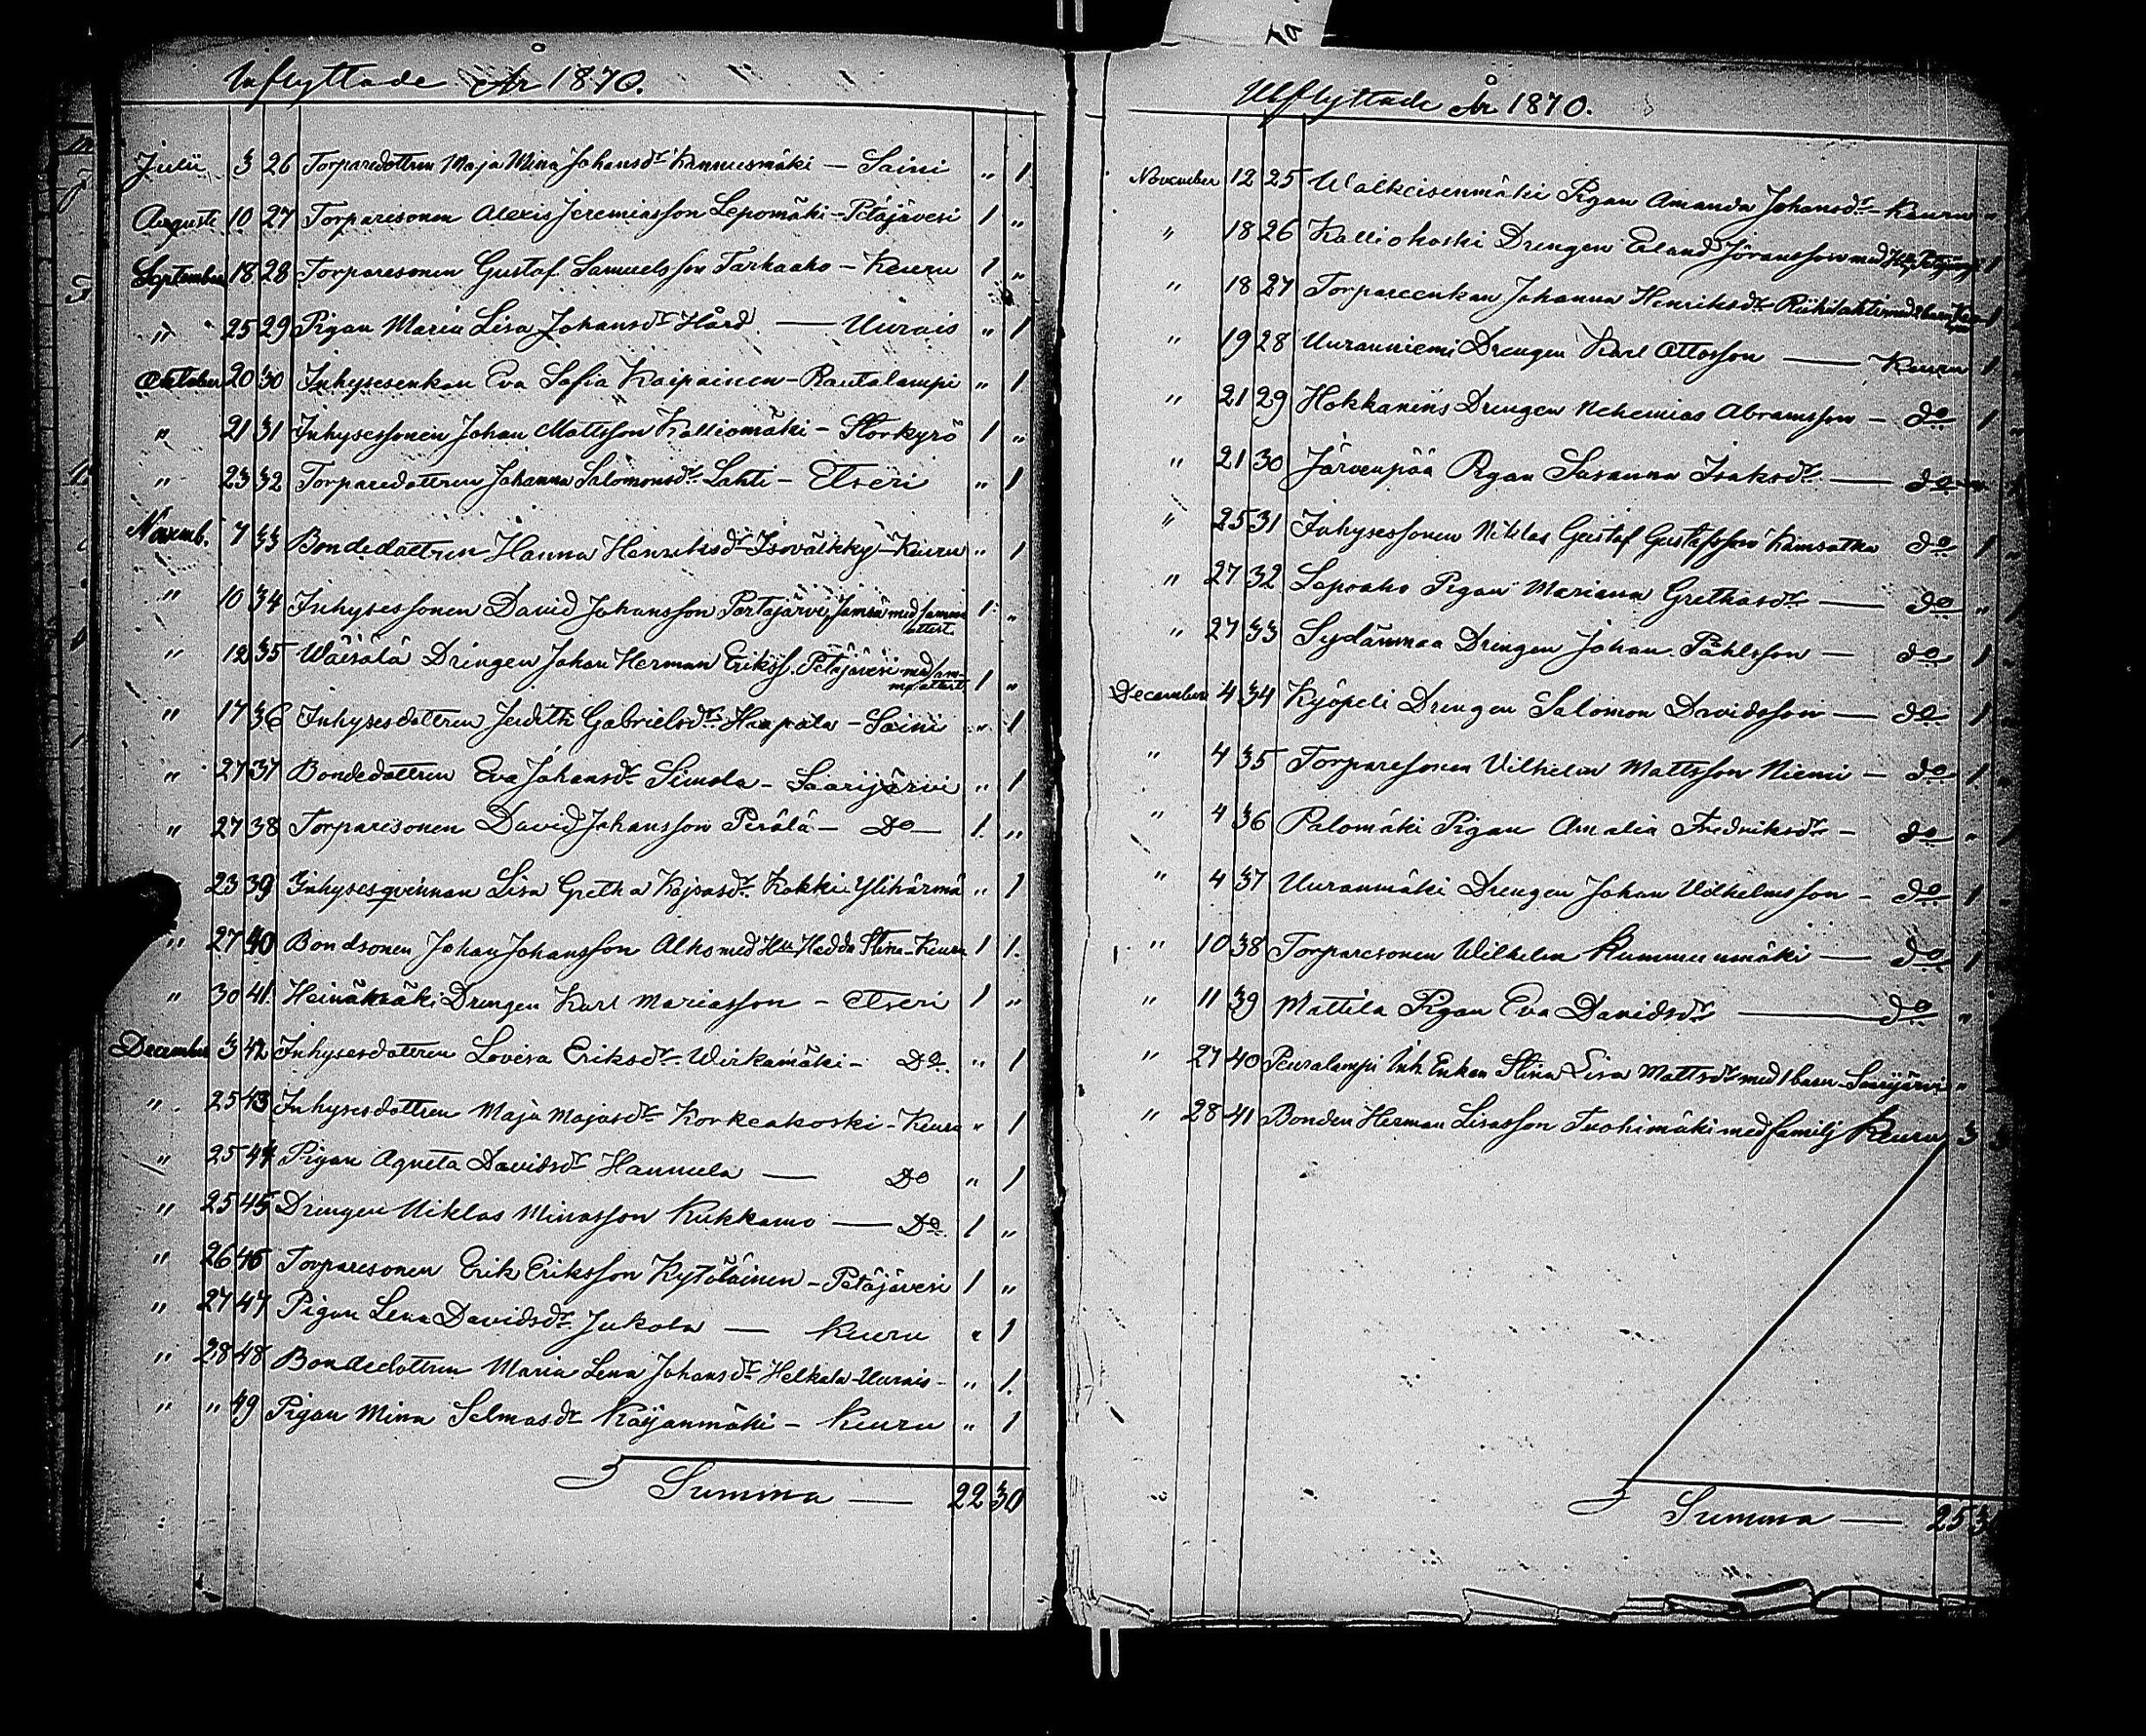 Inflyttade År 1870.
Julii 3 26 Torparedottren Maja Mina Johansdr Kannusmäki — Saini " 1
Augusti 10 27 Torparesonen Alexis Jeremiasson Lepomäki - Petäjävesi 1 "
September 18 28 Torparesonen Gustaf Samuelsson Tarhaaho - Keuru 1 "
" 25 29 Pigan Maria Lisa Johansdr Hård — Uurais " 1
Oktober 20 30 Inhysesenkan Eva Sofia Kaipainen - Rautalampi " 1
" 21 31 Inhysessonen Johan Mattsson Kalliomäki - Storkyrö 1 "
" 23 32 Torparedottren Johanna Salomonsdr Lahti - Etseri " 1
Novemb. 7 33 Bondedottren Hanna Henriksdr Isovälkky - Keuru " 1
" 10 34 Inhysessonen David Johansson Partajärvi, Jämsä med samma attest. 1 "
" 12 35 Wäisälä Drengen Johan Herman Erikss. Petäjävesi med samma attest 1 "
" 17 36 Inhysesdottren Judith Gabrielsdr Haapala - Saini " 1
" 27 37 Bondedottren Eva Johansdr Simola - Saarijärvi " 1
" 27 38 Torparesonen David Johansson Perälä - Do 1 "
23 39 Inhysesqvinnan Lisa Gretha Kajsasdr Kokki - Ylihärmä " 1
" 27 40 Bondsonen Johan Johansson Alho med Hu Hedda Stina - Keuru 1 1.
" 30 41. Heinämäki Drengen Karl Mariasson - Etseri 1 "
December 3 42 Inhysesdottren Lovisa Eriksdr Wirkamäki - Do. " 1
" 25 43 Inhysesdottren Maja Majasdr Korkeakoski - Keuru " 1
" 25 44 Pigan Agneta Davidsdr Hannula — Do " 1
" 25 45 Drengen Niklas Minasson Kukkamo — Do 1 "
" 26 46 Torparesonen Erik Eriksson Kytöläinen - Petäjävesi 1 "
" 27 47 Pigan Lena Davidsdr Jukola — Keuru " 1
" 28 48 Bondedottren Maria Lena Johansdr Helkala - Uurais - " 1.
" " 49 Pigan Mina Selmasdr Kaijanmäki - Keuru " 1
Summa — 22 30
Utflyttade År 1870.
November 12 25 Walkeisenmäki Pigan Amanda Johansdr - Keuru "
" 18 26 Kalliokoski Drengen Erland Jöransson med Hu 1
" 18 27 Torpareenkan Johanna Henriksdr Riihilahti med 2 barn 1
" 19 28 Uuranniemi Drengen Karl Ottosson — Keuru 1
" 21 29 Hokkanens Drengen Nehemias Abramsson - do 1
" 21 30 Järvenpää Pigan Susanna Isaksdr — do "
" 25 31 Inhysessonen Niklas Gustaf Gustafsson Kamsatka do 1
" 27 32 Lepoaho Pigan Mariana Grethasdr — do "
" 27 33 Sydänmaa Drengen Johan Påhlsson — do 1
December 4 34 Kyöpeli Drengen Salomon Davidsson — do 1
" 4 35 Torparesonen Vilhelm Mattsson Niemi - do 1
" 4 36 Palomäki Pigan Amalia Fredriksdr - do "
" 4 37 Uuranmäki Drengen Johan Vilhelmsson - do 1
" 10 38 Torparesonen Wilhelm Kummunmäki — do 1
" 11 39 Mattila Pigan Eva Davidsdr — do "
" 27 40 Peuralampi Inh. Enkan Stina Lisa Mattsdr med 1 barn Saarijärvi "
" 28 41 Bonden Herman Lisasson Tuohimäki med familj Keuru 3
Summa — 25